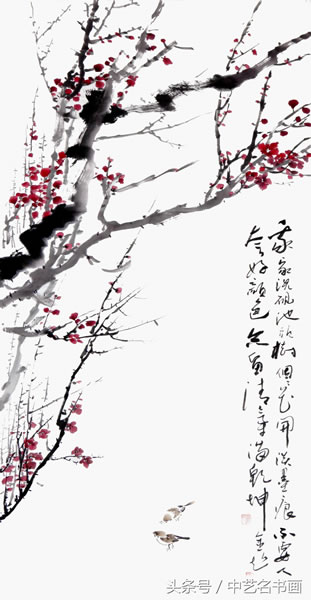 我家洗硯池頭樹個個花開淡墨痕不要人
夸好顏色只留清氣滿乾坤
头条号 / 中艺名书画